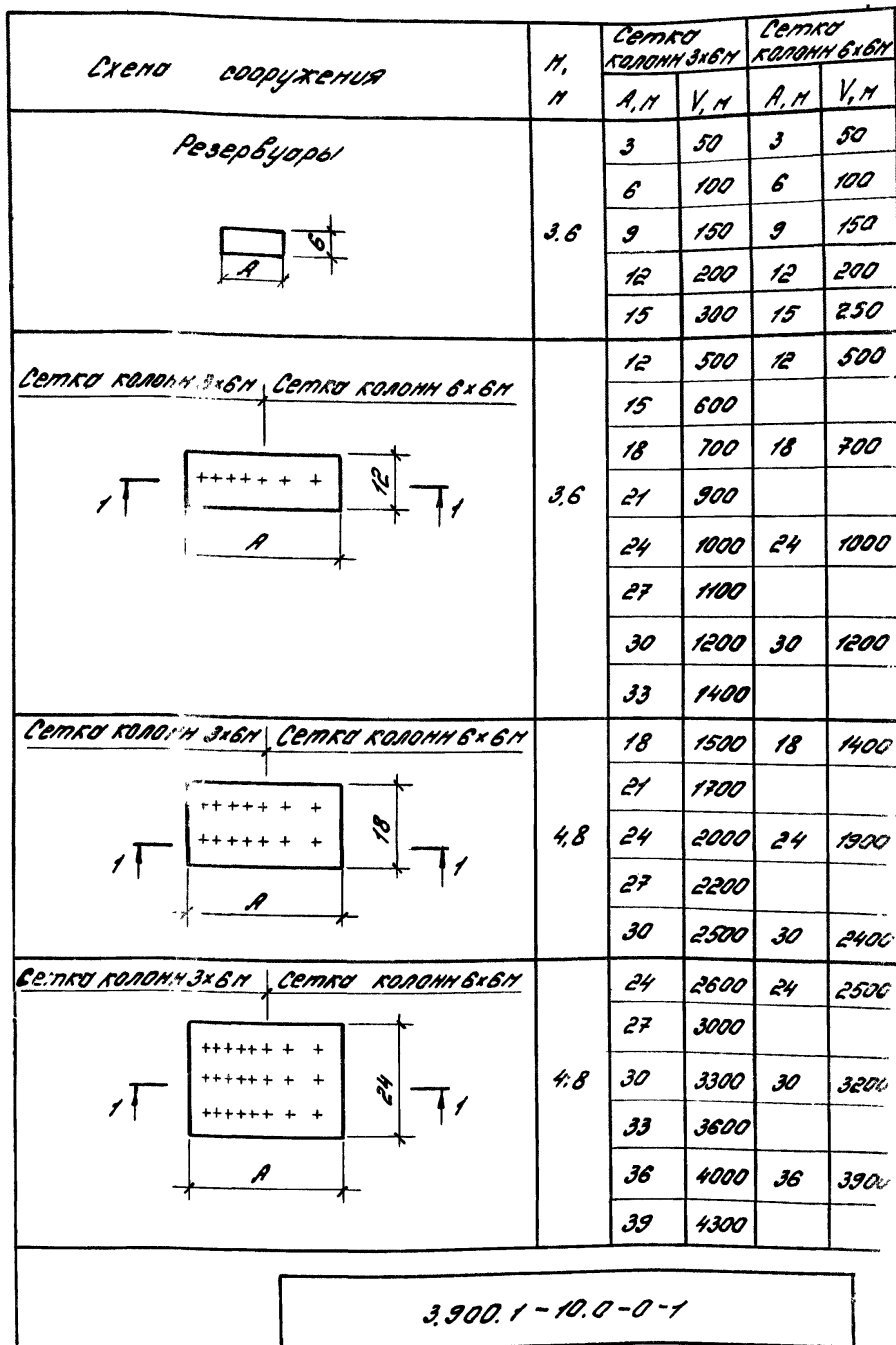 Схема сооружения
Н, м
Сетка колонн 3х6м
Сетка колонн 6х6м
А, м V, м А, м V, м
Резервуары
6
А
3.6
3 50 3 50
6 100 6 100
9 150 9 150
12 200 12 200
15 300 15 250
Сетка колонн 3х6м Сетка колонн 6х6м
12
1 1
А
3,6
12 500 12 500
15 600
18 700 18 700
21 900
24 1000 24 1000
27 1100
30 1200 30 1200
33 1400
Сетка колонн 3х6м Сетка колонн 6х6м
18
1 1
А
4,8
18 1500 18 1400
21 1700
24 2000 24 1900
27 2200
30 2500 30 2400
Сетка колонн 3х6м Сетка колонн 6х6м
24
1 1
А
4.8
24 2600 24 2500
27 3000
30 3300 30 3200
33 3600
36 4000 36 3900
39 4300
3.900.1-10.0-0-1